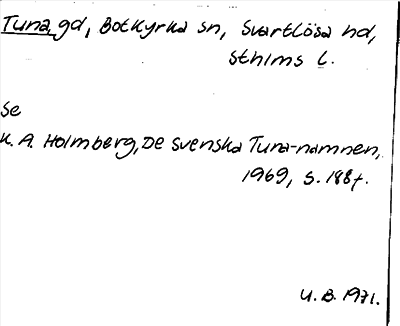 Tuna, gd, Botkyrka sn, Svartlösa hd,
Sthlms l.
Se
K. A. Holmberg, De svenska Tuna-namnen,
1969, s. 188f.
U. B. 1971.